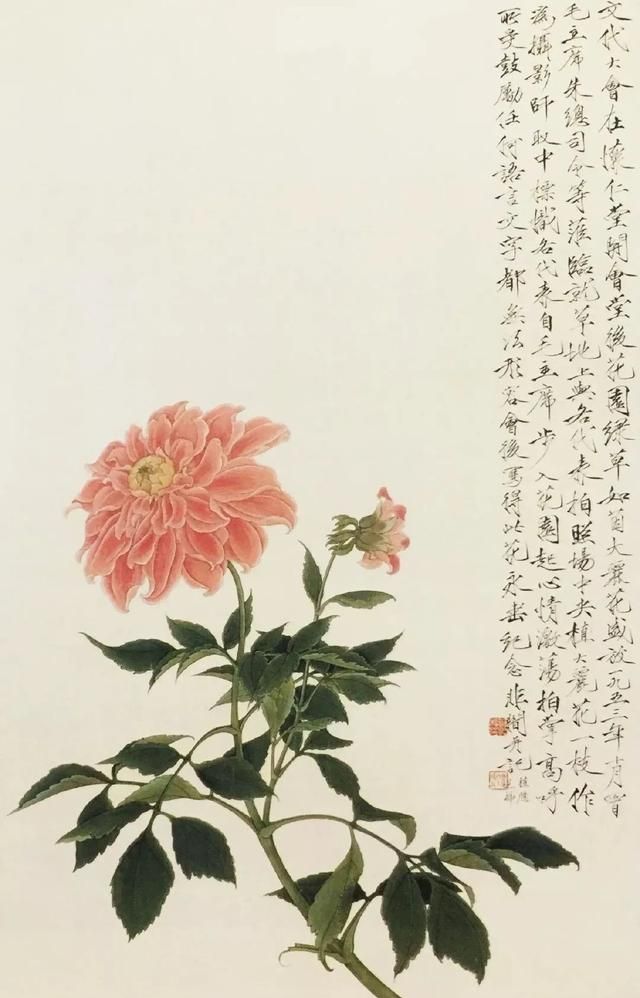 文代大會在懷仁堂開會堂後花園綠草如茵大麗花盛放一九五三年十月
毛主席朱總司令等蒞臨就草地上與各代表拍照場中央植大麗花一枝作
為攝影師取中標幟各代表自毛主席步入花園起心情激蕩拍掌高呼
所受鼓勵任何語言文字都無法形容會後寫得此花永紀念非闇并記